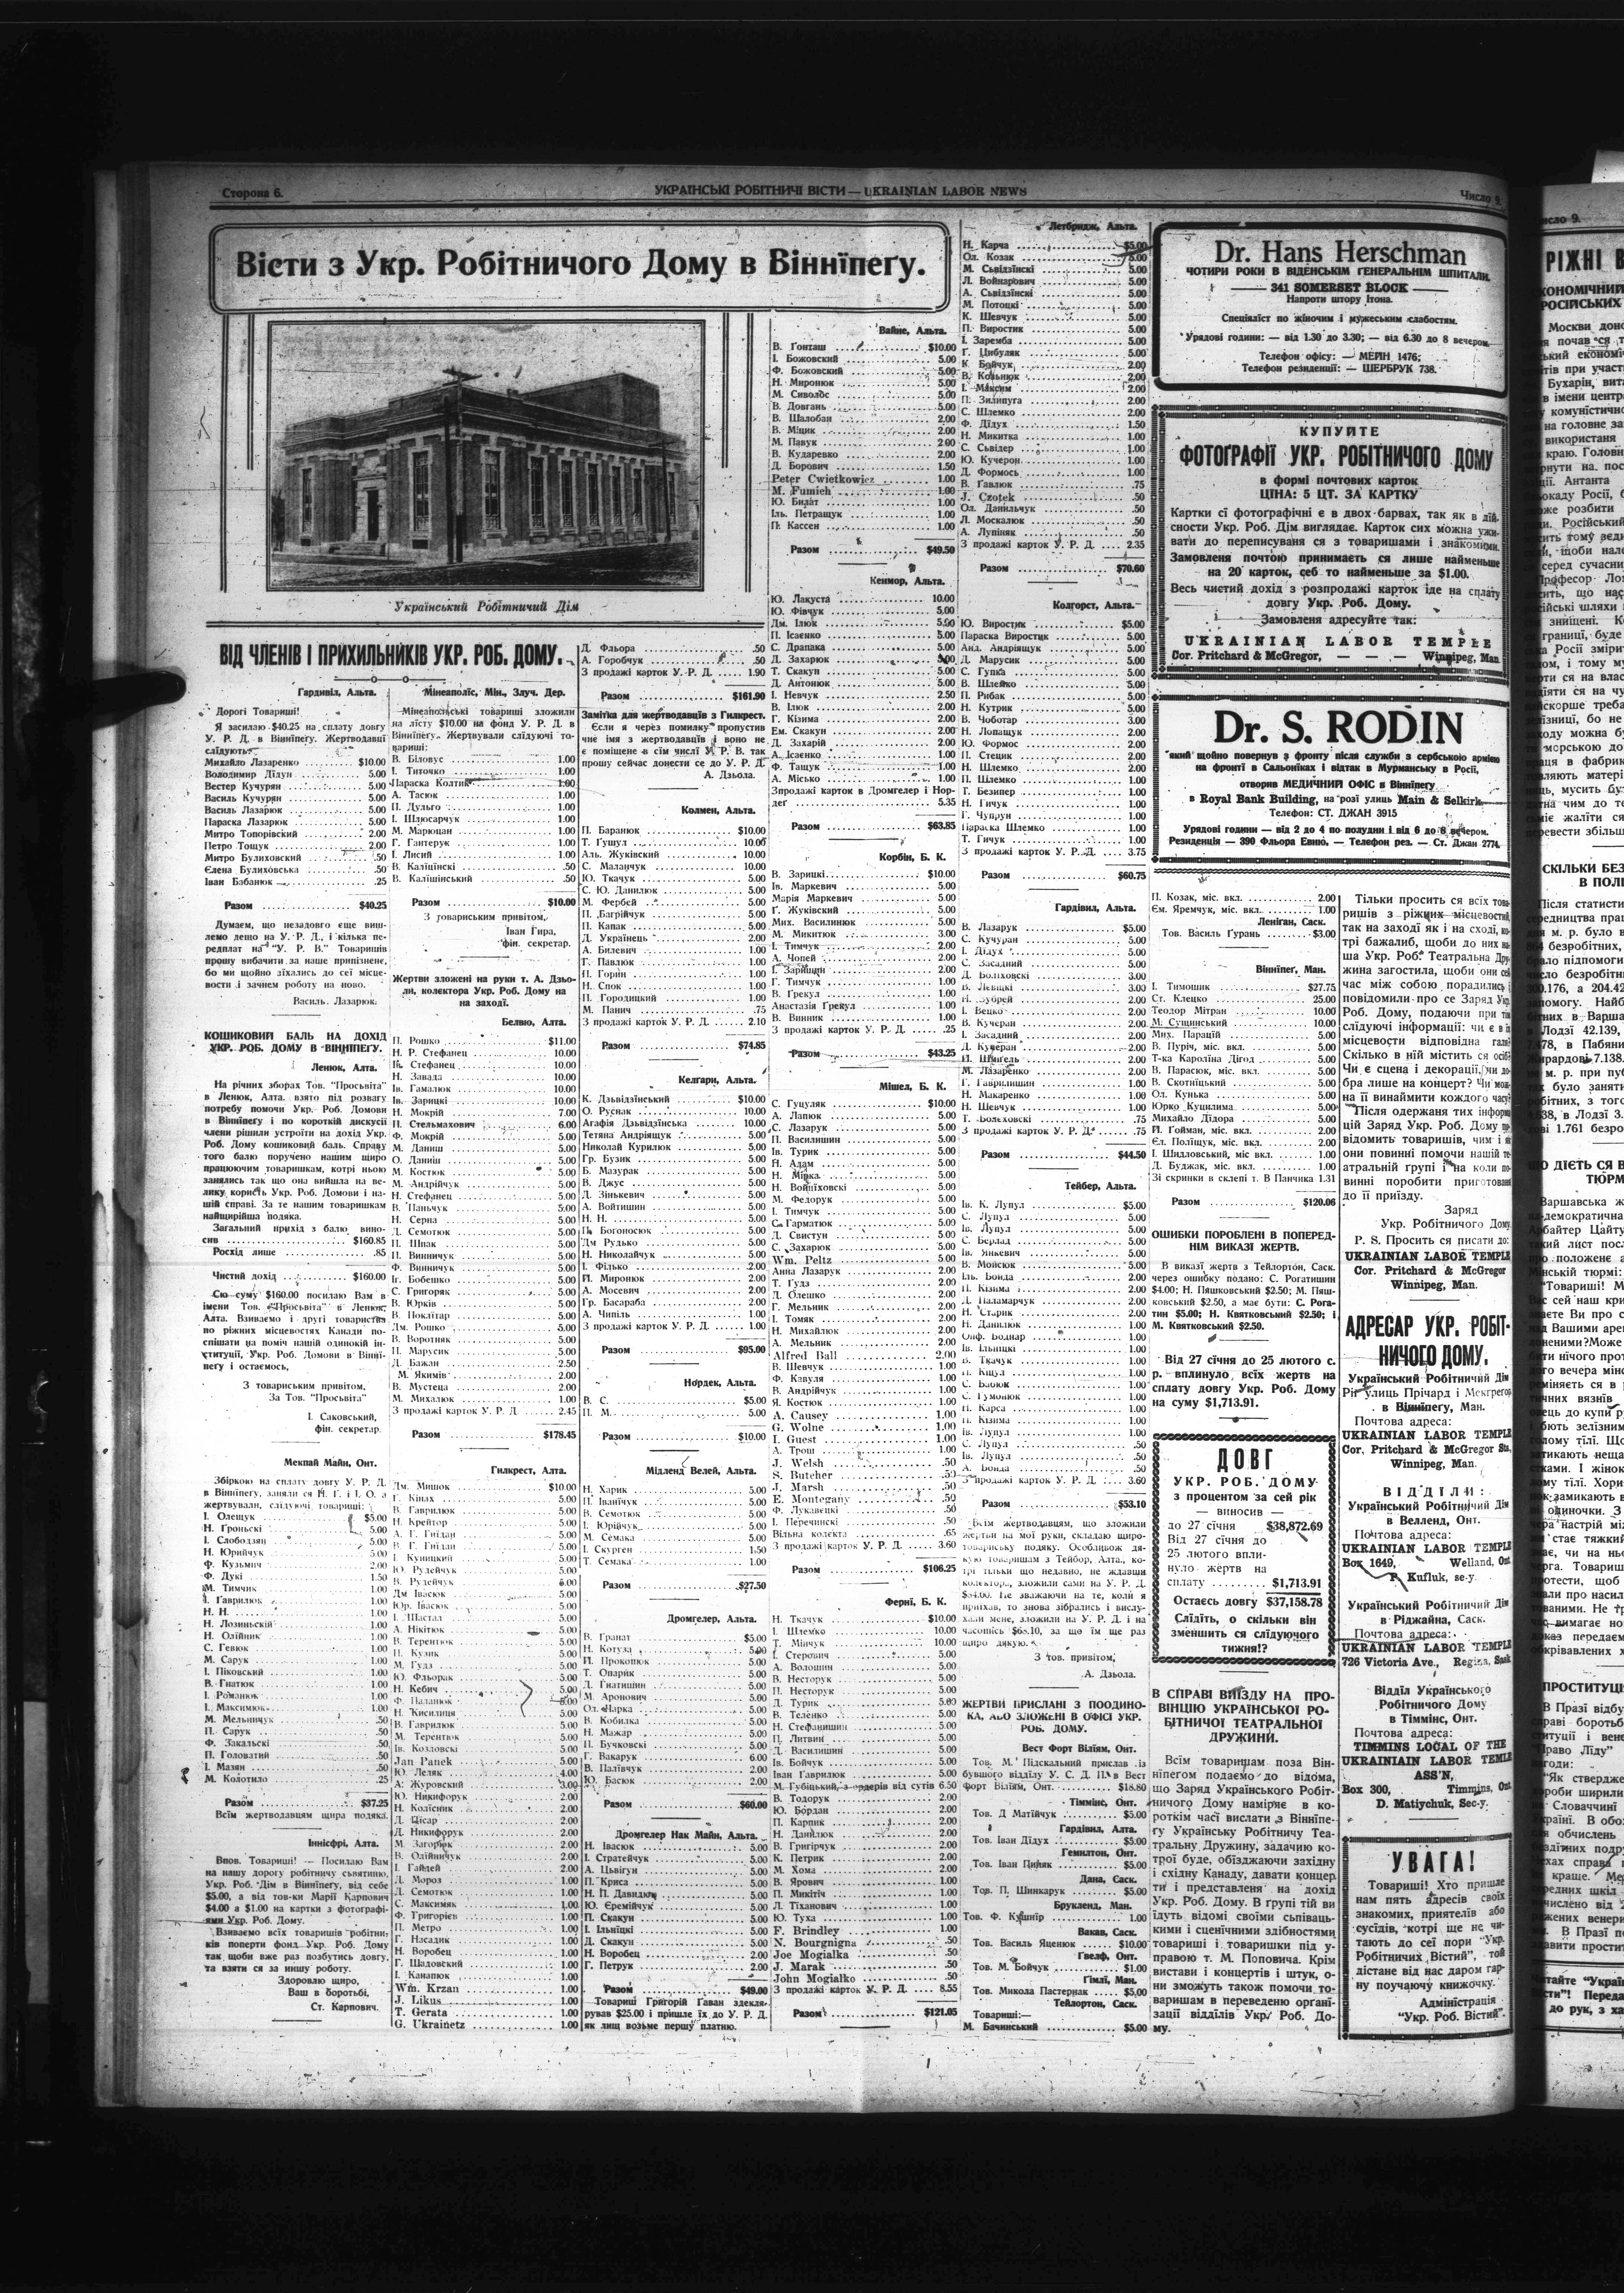 Сторона 6.
УКРАЇНСЬКІ РОБІТНИЧІ ВІСТИ — UKRAINIAN LABOR NEWS
Число 9.
Вісти з Укр. Робітничого Дому в Вінніпегу.
Український Робітничий Дім
ВІД ЧЛЕНІВ І ПРИХИЛЬНИКІВ УКР. РОБ. ДОМУ.
Гардивіл, Алта.
Дорогі Товариші!
Я засилаю $40.25 на сплату довгу
У. Р. Д. в Вінніпегу. Жертводавці
слідують:
Михайло Лазаренко $10.00
Володимир Дідун 5.00
Вестер Кучурян 5.00
Василь Кучурян 5.00
Василь Лазарюк 5.00
Параска Лазарюк 5.00
Митро Топорівский 2.00
Петро Тощук 2.00
Митро Булиховский .50
Єлена Булиховська .50
Іван Бабанюк .25
Разом $40.25
Думаєм, що незадовго єще виш-
лемо дещо на У. Р. Д., і кілька пе-
редплат на "У. Р. В." Товаришів
прошу вибачити за наше припізнене,
бо ми щойно зїхались до сеї місце-
вости і зачнем роботу на ново.
Василь Лазарюк.
КОШИКОВИЙ БАЛЬ НА ДОХІД
УКР. РОБ. ДОМУ В ВІННІПЕГУ.
Ленюк, Алта.
На річних зборах Тов. "Просьвіта"
в Ленюк, Алта. взято під розвагу
потребу помочи Укр. Роб. Домови
в Вінніпегу і по короткій дискусії
члени рішили устроїти на дохід Укр.
Роб. Дому кошиковий баль. Справу
того балю поручено нашим щиро
працюючим товаришкам, котрі нею
занялись так що она вийшла на ве-
лику користь Укр. Робітн. Домови і на-
шій справі. За те нашим товаришкам
найщирійша подяка.
Загальний прихід з балю вино-
сив $160.85
Росхід лише .85
Чистий дохід $160.00
Сю суму $160.00 посилаю Вам в
імени Тов. "Просьвіта" в Ленюк,
Алта. Взиваємо і другі товариства
по ріжних місцевостях Канади по-
спішати на поміч нашій одинокій ін-
ституції, Укр. Роб. Домови в Вінні-
пегу і остаємось,
З товариським привітом,
За Тов. "Просьвіта"
І. Саковський,
фін. секретар.
Мекпай Майн, Онт.
І. Олещук $5.00
Н. Гроньскі 5.00
І. Слободзян 5.00
Н. Юрийчук 5.00
Ф. Кузьмич 2.00
Ф. Дукі 1.50
М. Тимчик 1.00
І. Гаврилюк 1.00
Н. Н. 1.00
Н. Лозиньскій 1.00
Н. Олійник 1.00
С. Гевюк 1.00
М. Сарук 1.00
І. Піковский 1.00
В. Гнатюк 1.00
І. Романюк 1.00
І. Максимюк 1.00
М. Мельничук .50
П. Сарук .50
Ф. Закальскі .50
П. Головатий .50
І. Мазян .50
М. Колотило .25
Разом $37.25
Всїм жертводавцям щира подяка.
Іннісфрі, Алта.
Впов. Товариші! — Посилаю Вам
на нашу дорогу робітничу сьвятиню,
Укр. Роб. Дім в Вінніпегу, від себе
$5.00, а від тов-ки Марії Карпович
$4.00 а $1.00 на картки з фотографі-
ями Укр. Роб. Дому.
Взиваємо всїх товаришів робітни-
ків поперти фонд Укр. Роб. Дому
так щоби вже раз позбутись довгу,
та взяти ся за иншу роботу.
Здоровлю щиро,
Ваш в боротьбі,
Ст. Карпович.
Мінеаполіс, Мін., Злуч. Дер.
Мінеапольскі товариші зложили
на лісту $10.00 на фонд У. Р. Д. в
Вінніпегу. Жертвували слідуючі то-
вариші:
В. Біловус 1.00
І. Титочко 1.00
Параска Колтик 1.00
А. Тасюк 1.00
П. Дульго 1.00
І. Шлюсарчук 1.00
М. Марюцан 1.00
Г. Гантерук 1.00
І. Лисий 1.00
В. Каліцінскі .50
В. Калішінський .50
Разом $10.00
З товариським привітом,
Іван Гира,
фін. секретар.
Жертви зложені на руки т. А. Дзьо-
ли, колектора Укр. Роб. Дому на
на заході.
Белвю, Алта.
П. Рошко $11.00
Н. Р. Стефанец 10.00
Ів. Стефанец 10.00
Н. Завада 10.00
Ів. Гамалюк 10.00
Ів. Зарицкі 10.00
Н. Мокрій 7.00
П. Стельмахович 6.00
Ф. Мокрій 5.00
М. Даниш 5.00
О. Даниш 5.00
М. Костюк 5.00
М. Андрійчук 5.00
Н. Стефанец 5.00
В. Паньчук 5.00
Н. Серна 5.00
Д. Семотюк 5.00
П. Шпак 5.00
П. Винничук 5.00
Ф. Винничук 5.00
Іг. Бобешко 5.00
С. Григоряк 5.00
В. Юрків 5.00
В. Поклітар 5.00
Дм. Рошко 5.00
В. Воротняк 5.00
П. Марусик 5.00
Д. Бажан 2.50
М. Якимів 2.00
В. Мустеца 2.00
М. Михалюк 1.00
З продажі карток У. Р. Д. 2.45
Разом $178.45
Гилкрест, Алта.
Дм. Мишок $10.00
Г. Кінах 5.00
В. Гаврилюк 5.00
Н. Крейтор 5.00
А. Г. Гнідан 5.00
В. Г. Гнідан 5.00
І. Куницкий 5.00
Ю. Рудейчук 5.00
В. Рудейчук 5.00
Дм Івасюк 5.00
Юр. Івасюк 5.00
І. Шастал 5.00
А. Нікітюк 5.00
В. Терентюк 5.00
П. Кузик 5.00
М. Гудз 5.00
Ю. Фльорак 5.00
Н. Кебич 5.00
Ф. Паланюк 5.00
Н. Кисилиця 5.00
В. Гаврилюк 5.00
М. Терентюк 5.00
Ів. Козловскі 5.00
Jan Panek 5.00
Ю. Леляк 4.00
А. Журовский 3.00
Ю. Никифорук 2.00
Н. Колїсник 2.00
Д. Цісар 2.00
Д. Никифорук 2.00
М. Загорюк 2.00
В. Олійничук 2.00
І. Гайдей 2.00
Д. Мороз 1.00
Д. Семотюк 1.00
С. Максимяк 1.00
Ф. Григоріев 1.00
П. Метро 1.00
Г. Насадик 1.00
Н. Воробец 1.00
Г. Шадовский 1.00
І. Канапюк 1.00
Wm. Krzan 1.00
J. Likus 1.00
T. Gerata 1.00
G. Ukrainetz 1.00
Д. Фльора .50
А. Горобчук .50
З продажі карток У. Р. Д. 1.90
Разом $161.90
Замітка для жертводавців з Гилкрест.
Єсли я через помилку пропустив
чиє імя з жертводавців і воно не
є поміщене в сїм числї У. Р. В. так
прошу сейчас донести се до У. Р. Д.
А. Дзьола.
Колмен, Альта.
П. Баранюк $10.00
Т. Гушул 10.00
Аль. Жуківский 10.00
С. Маланчук 10.00
Ю. Ткачук 5.00
С. Ю. Данилюк 5.00
М. Фербей 5.00
П. Багрійчук 5.00
П. Капак 5.00
Д. Українець 2.00
А. Билевич 1.00
Т. Павлюк 1.00
П. Горин 1.00
Н. Спок 1.00
П. Городицкий 1.00
М. Панич .75
З продажі карток У. Р. Д. 2.10
Разом $74.85
Келгари, Альта.
К. Дзьвідзїнський $10.00
О. Руснак 10.00
Агафія Дзьвідзїнська 10.00
Тетяна Андріящук 5.00
Николай Курилюк 5.00
Гр. Бузик 5.00
Б. Мазурак 5.00
В. Джус 5.00
Д. Зінькевич 5.00
А. Войтишин 5.00
Н. Н. 5.00
П. Богоносюк 5.00
Дм Рудько 5.00
Н. Николайчук 5.00
І. Філько 2.00
Й. Миронюк 2.00
А. Мосевич 2.00
Гр. Басараба 2.00
А. Чипіль 1.00
З продажі карток У. Р. Д. 1.00
Разом $95.00
Нордек, Альта.
В. С. $5.00
П. М. 5.00
Разом $10.00
Мідленд Велей, Альта.
Н. Харик 5.00
П. Іванїчук 5.00
В. Семотюк 5.00
І. Юрійчук 5.00
М. Семака 5.00
І. Скурген 1.50
Т. Семака 1.00
Разом $27.50
Дромгелер, Альта.
В. Гранат $5.00
Н. Котуза 5.00
П. Прокопюк 5.00
Т. Опарик 5.00
Д. Гнатишин 5.00
М. Аронович 5.00
Ол. Чарка 5.00
В. Кобилка 5.00
Н. Мажар 5.00
П. Бучковскі 5.00
Г. Вакарук 6.00
В. Палївчук 2.00
Ю. Басюк 2.00
Разом $60.00
Дромгелер Нак Майн, Альта.
Н. Івасюк 5.00
І. Стратейчук 5.00
А. Цьвігун 5.00
П. Криса 5.00
Н. П. Давидюк 5.00
Ю. Єремійчук 5.00
П. Скакун 5.00
І. Ільніцкі 5.00
Д. Скакун 5.00
Н. Воробец 2.00
Г. Петрук 2.00
Разом $49.00
Товариш Григорій Гаван здекля-
рував $25.00 і пришле їх до У. Р. Д.
як лиш возьме першу платню.
Вайне, Альта.
В. Гонташ $10.00
І. Божовский 5.00
Ф. Божовский 5.00
Н. Миронюк 5.00
М. Сиволос 5.00
В. Довгань 5.00
В. Шалобан 2.00
В. Міцик 2.00
М. Павук 2.00
В. Кударевко 2.00
Д. Борович 1.50
Peter Cwietkowicz 1.00
M. Fumich 1.00
Ю. Билат 1.00
Іль. Петращук 1.00
П. Кассен 1.00
Разом $49.50
Кенмор, Альта.
Ю. Лакуста 10.00
Ю. Фівчук 5.00
Дм. Ілюк 5.00
П. Ісаєнко 5.00
С. Драпака 5.00
Д. Захарюк 5.00
Т. Скакун 5.00
Д. Антонюк 5.00
І. Невчук 2.50
В. Ілюк 2.00
Г. Кізима 2.00
Ем. Скакун 2.00
Д. Захарій 2.00
А. Ісаєнко 1.00
Ф. Тащук 1.00
А. Місько 1.00
Зпродажі карток в Дромгелер і Нор-
дег 5.35
Разом $63.85
Корбін, Б. К.
В. Зарицкі $10.00
Ів. Маркевич 5.00
Марія Маркевич 5.00
Г. Жуківский 5.00
Мих. Василинюк 5.00
М. Микитюк 3.00
І. Тимчук 2.00
А. Чопей 2.00
І. Заришин 2.00
Г. Тимчук 1.00
В. Грекул 1.00
Анастазія Грекул 1.00
В. Винник 1.00
З продажі карток У. Р. Д. .25
Разом $43.25
Мішел, Б. К.
С. Гуцуляк $10.00
А. Лапюк 5.00
С. Лазарук 5.00
П. Василишин 5.00
Ів. Турик 5.00
Н. Адам 5.00
Н. Мірка 5.00
Н. Войціховскі 5.00
М. Федорук 5.00
І. Тимчук 5.00
С. Гарматюк 5.00
Д. Свистун 5.00
С. Захарюк 5.00
Wm. Peltz 2.00
Анна Лазарук 2.00
Т. Гудз 2.00
Д. Олешко 2.00
Г. Мельник 2.00
І. Томяк 2.00
Н. Михайлюк 2.00
А. Мельник 2.00
Alfred Ball 2.00
В. Шевчук 1.00
Ф. Кавуля 1.00
В. Андрійчук 1.00
Я. Костюк 1.00
A. Causey 1.00
G. Wolne 1.00
I. Guest 1.00
А. Трош 1.00
J. Welsh .50
S. Butcher .50
J. Marsh .50
E. Montegany .50
Ф. Лукавецкі .50
І. Перечинскі .50
Вільна колєкта .65
З продажі карток У. Р. Д. 3.60
Разом $106.25
Ферні, Б. К.
Н. Ткачук $10.00
І. Шлемко 10.00
Т. Мінчук 10.00
І. Стерович 5.00
А. Волошин 5.00
В. Несторук 5.00
П. Несторук 5.00
Д. Турик 5.00
В. Теленко 5.00
Н. Стефанишин 5.00
П. Литвин 5.00
Д. Василишин 5.00
Ів. Бойчук 5.00
Іван Гаврилюк 5.00
М. Губіцький, з ордерів від сутів 6.50
В. Тодорук 2.00
Ю. Бордан 2.00
П. Карпик 2.00
Н. Данилюк 2.00
В. Григірчук 2.00
К. Петрик 2.00
М. Хома 2.00
В. Ярович 1.00
П. Микитіч 1.00
Л. Тіханович 1.00
Ю. Туха 1.00
F. Brindley 1.00
N. Bourgnigna .50
Joe Mogialka .50
J. Marak .50
John Mogialko .50
З продажі карток У. Р. Д. 8.55
Разом $121.05
Летбридж, Альта.
Н. Карча $5.00
Ол. Козак 5.00
М. Сьвідзїнскі 5.00
Л. Войнарович 5.00
А. Сьвідзїнскі 5.00
М. Потоцкі 5.00
К. Шевчук 5.00
П. Виростик 5.00
І. Заремба 5.00
Г. Цибуляк 5.00
К. Бойчук 2.00
В. Козьнюк 2.00
І. Максим 2.00
П. Зилипуга 2.00
С. Шлемко 2.00
Ф. Дїдух 1.50
Н. Микитка 1.00
С. Сьвідер 1.00
Ю. Кучерон 1.00
Д. Формось 1.00
В. Гавлюк .75
J. Czotek .50
Ол. Данильчук .50
Л. Москалюк .50
А. Лупіняк .50
З продажі карток У. Р. Д. 2.35
Разом $70.60
Колгорст, Альта.
Ю. Виростик $5.00
Параска Виростик 5.00
Анд. Андріящук 5.00
Д. Марусик 5.00
С. Гупка 5.00
В. Шлемко 5.00
П. Рибак 5.00
Н. Кутрик 5.00
В. Чоботар 3.00
Н. Лопащук 2.00
Ю. Формос 2.00
П. Стецик 2.00
Н. Шлемко 2.00
П. Шлемко 1.00
Г. Безипер 1.00
Н. Гичук 1.00
Г. Чупрун 1.00
Параска Шлемко 1.00
Т. Гичук 1.00
З продажі карток У. Р. Д. 3.75
Разом $60.75
Гардівіл, Альта.
В. Лазарук $5.00
С. Кучуран 5.00
І. Дїдух 5.00
С. Засадний 5.00
Д. Боліховскі 3.00
В. Левіцкі 3.00
Н. Зубрей 2.00
І. Вецко 2.00
В. Кучеран 2.00
І. Засадний 2.00
Д. Кучеран 2.00
П. Шмігель 2.00
М. Лазаренко 2.00
Г. Гаврилишин 1.00
Н. Макаренко 1.00
Н. Шевчук 1.00
Т. Больховскі .75
З продажі карток У. Р. Д. .75
Разом $44.50
Тейбер, Альта.
Ів. К. Лупул $5.00
С. Лупул 5.00
Ів. Лупул 5.00
С. Берлад 5.00
Ів. Янкевич 5.00
В. Мойсюк 5.00
Іль. Бойда 2.00
П. Кізима 2.00
Д. Паламарчук 2.00
Н. Старик 2.00
Н. Данилюк 1.00
Онф. Боднар 1.00
Ів. Ільніцкі 1.00
В. Ткачук 1.00
П. Кіцул 1.00
С. Баюк 1.00
С. Гумонюк 1.00
П. Карса 1.00
П. Кізима 1.00
Ів. Лупул 1.00
С. Лупул .50
Ів. Лупул .50
А. Бойда .50
З продажі карток У. Р. Д. 3.60
Разом $53.10
Всїм жертводавцям, що зложили
жертви на мої руки, складаю щиро-
товариську подяку. Особливож дя-
кую товаришам з Тейбор, Алта., ко-
трі тільки що недавно, не ждавши
колєктора, зложили сами на У. Р. Д.
$34.00. Не зважаючи на те, коли я
приїхав, то знова зібрались і вислу-
хали мене, зложили на У. Р. Д. і на
часопись $65.10, за що їм ще раз
щиро дякую.
З тов. привітом,
А. Дзьола.
ЖЕРТВИ ПРИСЛАНІ З ПООДИНО-
КА, АБО ЗЛОЖЕНІ В ОФІСІ УКР.
РОБ. ДОМУ.
Вест Форт Вілїям, Онт.
Тов. М. Підскальний прислав із
бувшого віддїлу У. С. Д. П. в Вест
Форт Вілїям, Онт. $18.80
Тіммінс, Онт.
Тов. Д Матійчук $5.00
Гардивіл, Алта.
Тов. Іван Дїдух $5.00
Гемилтон, Онт.
Тов. Іван Циняк $5.00
Дана, Саск.
Тов. П. Шинкарук $5.00
Брукленд, Ман.
Тов. Ф. Кушнїр 1.00
Вакав, Саск.
Тов. Василь Яценюк $10.00
Гвелф, Онт.
Тов. М. Бойчук $1.00
Гімлі, Ман.
Тов. Микола Пастернак $5.00
Тейлортон, Саск.
Товариші:
М. Бачинський $5.00
Dr. Hans Herschman
ЧОТИРИ РОКИ В ВІДЕНСЬКІМ ГЕНЕРАЛЬНІМ ШПИТАЛИ.
341 SOMERSET BLOCK
Напроти штору Ітона.
Спеціялїст по жіночим і мужеським слабостям.
Урядові години: — від 1.30 до 3.30; — від 6.30 до 8 вечером.
Телефон офісу: — МЕЙН 1476;
Телефон резиденції: — ШЕРБРУК 738.
КУПУЙТЕ
ФОТОГРАФІЇ УКР. РОБІТНИЧОГО ДОМУ
в формі почтових карток
ЦІНА: 5 ЦТ. ЗА КАРТКУ
Картки сї фотографічні є в двох барвах, так як в дїй-
сности Укр. Роб. Дім виглядає. Карток сих можна ужи-
вати до переписуваня ся з товаришами і знакомими.
Замовленя почтою принимаєть ся лише найменьше
на 20 карток, себ то найменьше за $1.00.
Весь чистий дохід з розпродажі карток іде на сплату
довгу Укр. Роб. Дому.
Замовленя адресуйте так:
UKRAINIAN LABOR TEMPLE
Cor. Pritchard & McGregor, — — — Winnipeg, Man.
Dr. S. RODIN
який щойно повернув з фронту після служби з сербською армією
на фронті в Сальонїках і відтак в Мурманську в Росії,
отворив МЕДИЧНИЙ ОФІС в Вінніпегу
в Royal Bank Building, на розі улиць Main & Selkirk,
Телефон: СТ. ДЖАН 3915
Урядові години — від 2 до 4 по полудни і від 6 до 8 вечером.
Резиденція — 390 Фльора Евню, — Телефон рез. — Ст. Джан 2774.
П. Козак, міс. вкл. 2.00
Єм. Яремчук, міс. вкл. 1.00
Леніган, Саск.
Тов. Василь Гурань $3.00
Вінніпег, Ман.
І. Тимошик $27.75
Ст. Клецко 25.00
Теодор Мітран 10.00
М. Сущинський 10.00
Мих. Парацїй 5.00
В. Пуріч, міс. вкл. 5.00
Т-ка Каролїна Дїгод 5.00
В. Парасюк, міс. вкл. 5.00
В. Скотніцький 5.00
Ол. Кунька 5.00
Юрко Куцилима 5.00
Михайло Дїдора 5.00
Й. Гойман, міс. вкл. 2.00
Єл. Поліщук, міс. вкл. 2.00
І. Шидловський, міс вкл. 1.00
Д. Буджак, міс. вкл. 1.00
Зі скринки в склепі т. В Панчика 1.31
Разом $120.06
ОШИБКИ ПОРОБЛЕНІ В ПОПЕРЕД-
НІМ ВИКАЗІ ЖЕРТВ.
В виказі жертв з Тейлортон, Саск.
через ошибку подано: С. Рогатишин
$4.00; Н. Пяшковський $2.50; М. Пяш-
ковський $2.50, а має бути: С. Рога-
тин $5.00; Н. Квятковський $2.50; і
М. Квятковський $2.50.
Від 27 сїчня до 25 лютого с.
р. вплинуло всїх жертв на
сплату довгу Укр. Роб. Дому
на суму $1,713.91.
ДОВГ
УКР. РОБ. ДОМУ
з процентом за сей рік
— виносив —
до 27 сїчня $38,872.69
Від 27 сїчня до
25 лютого впли-
нуло жертв на
сплату $1,713.91
Остаєсь довгу $37,158.78
Слїдїть, о скільки він
зменшить ся слїдуючого
тижня!?
В СПРАВІ ВИЇЗДУ НА ПРО-
ВІНЦІЮ УКРАЇНСЬКОЇ РО-
БІТНИЧОЇ ТЕАТРАЛЬНОЇ
ДРУЖИНИ.
Всїм товаришам поза Він-
нїпегом подаємо до відома,
що Заряд Українського Робіт-
ничого Дому наміряє в ко-
роткім часї вислати з Вінніпе-
гу Українську Робітничу Теа-
тральну Дружину, задачию ко-
трої буде, обїзджаючи західну
і східну Канаду, давати концер-
ти і представленя на дохід
Укр. Роб. Дому. В групі тій ви
їдуть відомі своїми сьпіваць-
кими і сценїчними здібностями
товариші і товаришки під у-
правою т. М. Поповича. Крім
вистави і концертів і штук, о-
ни зможуть також помочи то-
варишам в переведеню орґані-
зації віддїлів Укр. Роб. До-
му.
Тільки просить ся всїх това-
ришів з ріжних місцевостий,
так на заході як і на сході, ко-
трі бажалиб, щоби до них на-
ша Укр. Роб. Театральна Дру-
жина загостила, щоби они сей
час між собою порадились і
повідомили про се Заряд Укр.
Роб. Дому, подаючи при тім
слїдуючі інформації: чи є в їх
місцевости відповідна галя?
Скілько в нїй містить ся осіб?
Чи є сцена і декорації, чи до-
бра лише на концерт? Чи мож-
на її винаймити кождого часу?
Після одержаня тих інформа-
цій Заряд Укр. Роб. Дому по-
відомить товаришів, чим і як
они повинні помочи нашій те-
атральній групі і на коли по-
винні поробити приготованя
до її приїзду.
Заряд
Укр. Робітничого Дому.
P. S. Просить ся писати до:
UKRAINIAN LABOR TEMPLE
Cor. Pritchard & McGregor
Winnipeg, Man.
АДРЕСАР УКР. РОБІТ-
НИЧОГО ДОМУ.
Український Робітничий Дім
Ріг улиць Прічард і Мекгрегор
в Вінніпегу, Ман.
Почтова адреса:
UKRAINIAN LABOR TEMPLE
Cor. Pritchard & McGregor Sts.
Winnipeg, Man.
ВІДДЇЛИ:
Український Робітничий Дім
в Велленд, Онт.
Почтова адреса:
UKRAINIAN LABOR TEMPLE
Box 1649, Welland, Ont.
P. Kufluk, se-y.
Український Робітничий Дім
в Ріджайна, Саск.
Почтова адреса:
UKRAINIAN LABOR TEMPLE
726 Victoria Ave., Regina, Sask
Віддїл Українського
Робітничого Дому
в Тіммінс, Онт.
Почтова адреса:
TIMMINS LOCAL OF THE
UKRAINIAIN LABOR TEMLE
ASS'N,
Box 300, Timmins, Ont.
D. Matiychuk, Sec-y.
УВАГА!
Товариші! Хто пришле
нам пять адресів своїх
знакомих, приятелів або
сусїдів, котрі ще не чи-
тають до сеї пори "Укр.
Робітничих Вістий", той
дістане від нас даром гар-
ну поучаючу книжочку.
Адмінїстрація
"Укр. Роб. Вістий".